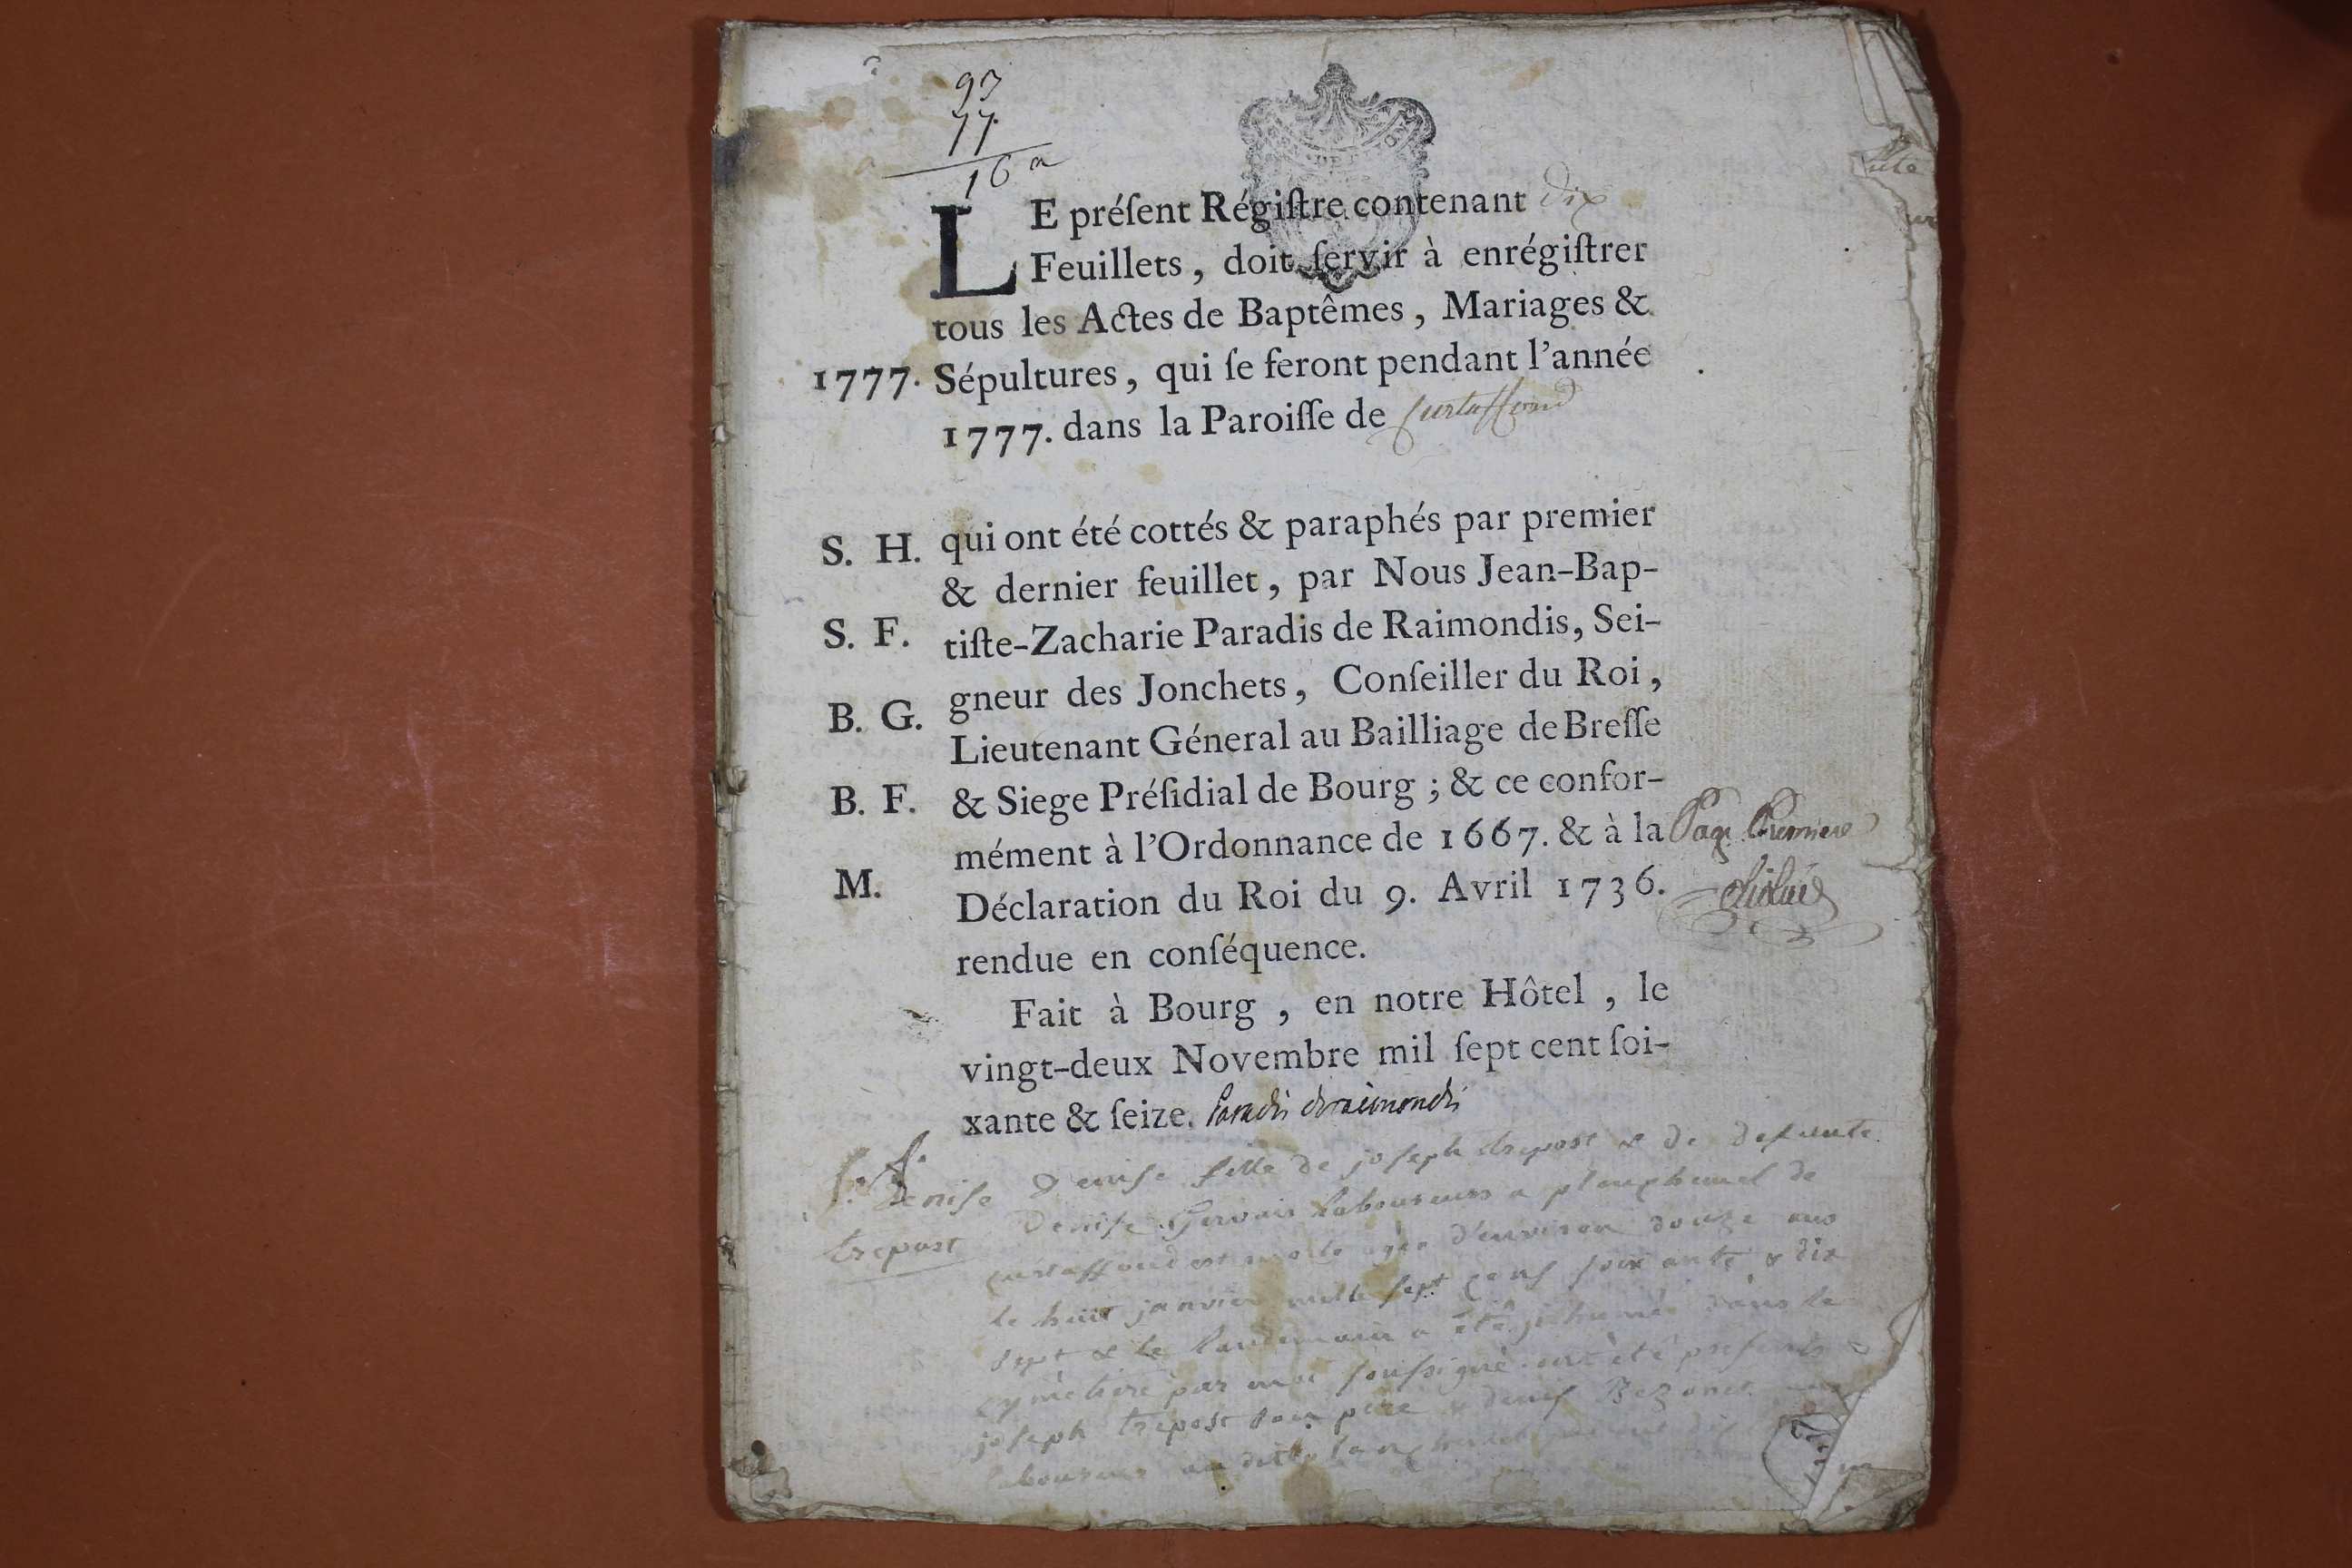 93
77
16
LE préſent Régiſtre contenant dix
Feuillets, doit ſervir à enrégiſtrer
tous les Actes de Baptêmes, Mariages &
1777. Sépultures, qui ſe feront pendant l'année
1777. dans la Paroiſſe de Curtaffond
S. H. qui ont été cottés & paraphés par premier
& dernier feuillet, par Nous Jean-Bap-
S. F. tiſte-Zacharie Paradis de Raimondis, Sei-
gneur des Jonchets, Conſeiller du Roi,
B. G. Lieutenant Géneral au Bailliage de Breſſe
B. F. & Siege Préſidial de Bourg ; & ce confor-
mément à l'Ordonnance de 1667. & à la Page Premiere
M. Déclaration du Roi du 9. Avril 1736.
rendue en conſéquence.
Fait à Bourg, en notre Hôtel, le
vingt-deux Novembre mil ſept cent ſoi-
xante & ſeize. Paradis de raimondis
S. f.
Denise Denise fille de joseph trepost & de defunte
trepost Denise Gervais laboureurs a
curtaffond est morte agée d'environ douze ans
le huit janvier mille sept cens soixante & dix
sept & le landemain a été inhumée dans le
cymetiere par moi soussigné ont été presents
joseph trepost son pere & denis Bezonet